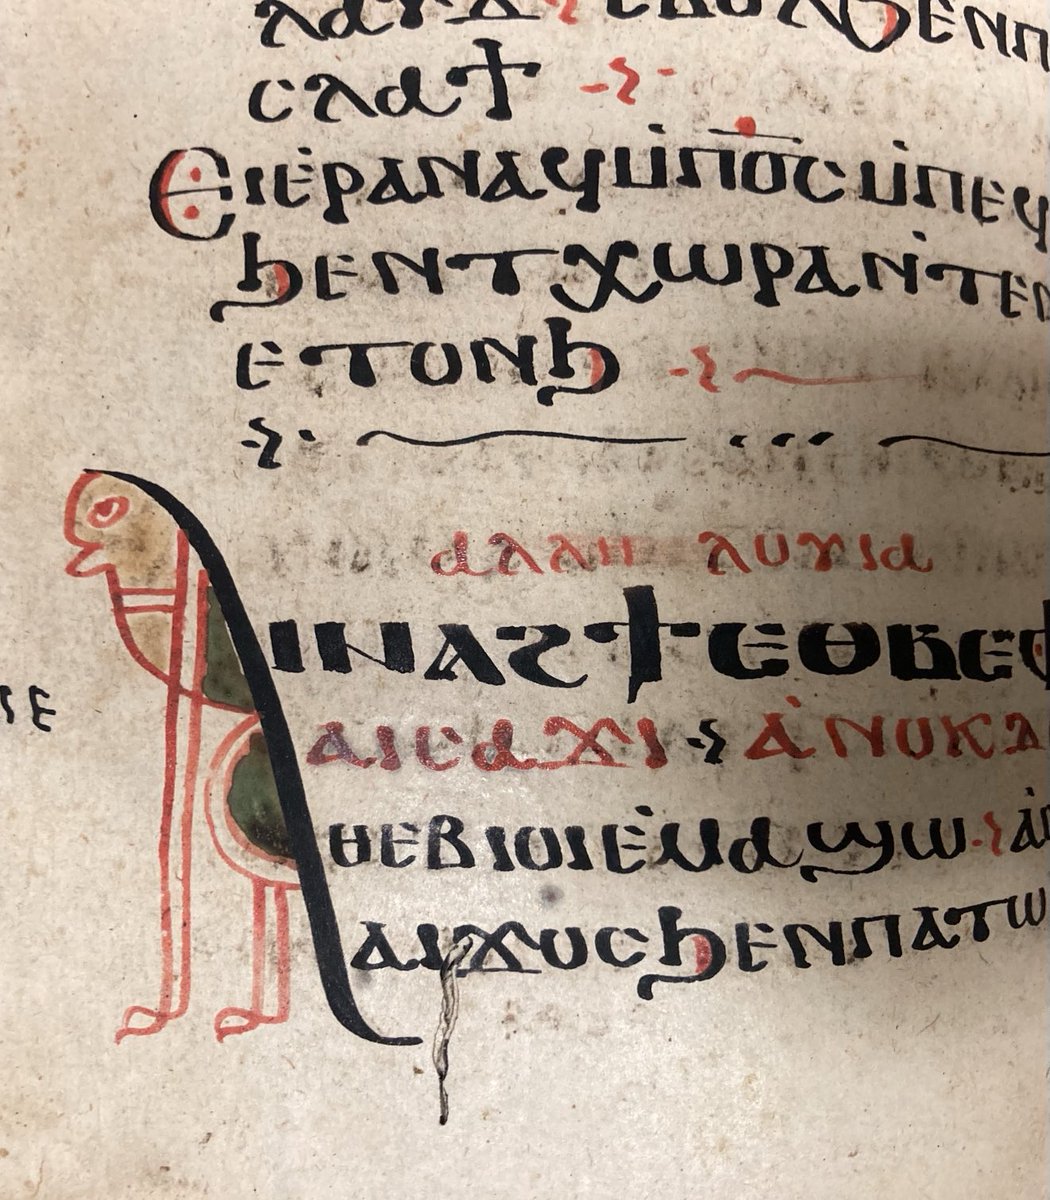 ⲗⲁⲩϫ ⲉⲃⲟⲗϧⲉⲛⲡ
ⲥⲗⲁϯ
ⲉⲓⲉ̀ⲣⲁⲛⲁϥⲙ̀ⲡⲟ̅ⲥ̅ⲙ̀ⲡⲉϥ
ϧⲉⲛⲧⲭⲱⲣⲁⲛ̀ⲧⲉⲛ
ⲉⲧⲟⲛϧ
ⲁⲗⲗⲏ ⲗⲟⲩⲓⲁ
ⲁⲓⲛⲁϩϯⲉⲑⲃⲉⲫ
ⲓⲉ
ⲁⲓⲥⲁϫⲓ ⲁ̀ⲛⲟⲕⲇ
ⲑⲉⲃⲓⲟⲓⲉ̀ⲙⲁϣⲱ ⲁ̀
ⲁⲓϫⲟⲥϧⲉⲛⲡⲁⲧⲱ